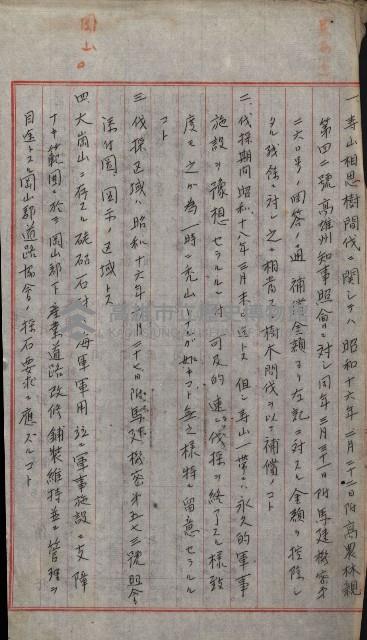 岡山
一、寿山相思樹間伐ニ関シテハ昭和十六年二月二十二日附高農林親
第四二號高雄州知事照會ニ対シ同年三月三十一日附馬建機密第
二六〇号ノ回答ノ通補償金額ヨリ左記ニ対スル金額ヲ控除シ
タル残餘ニ対シ之ニ相当スル樹木間伐ヲ以テ補償ノコト
二、伐採期間昭和十八年三月末迄トス但シ寿山一帯ニハ永久的軍事
施設ヲ豫想セラルルニ付可的速ニ伐採ヲ終了スル様致
度モ之ガ為一時ニ禿山トナルガ如キコト無之様特ニ留意セラルル
コト
三、伐採区域ハ昭和十六年 月二十七日附馬建機密第五七三號照会
添付図ニ図示ノ区域トス
四、大崗山ニ存スル硓𥑮石ハ対海軍軍用竝ニ軍事施設ニ支障
ナキ範囲ニ於テ岡山郡下産業道路改修鋪装維持並ニ管理ヲ
目途トスル岡山郡道路協會ノ採石要求ニ應ズルコト
高雄市立歷史博物館